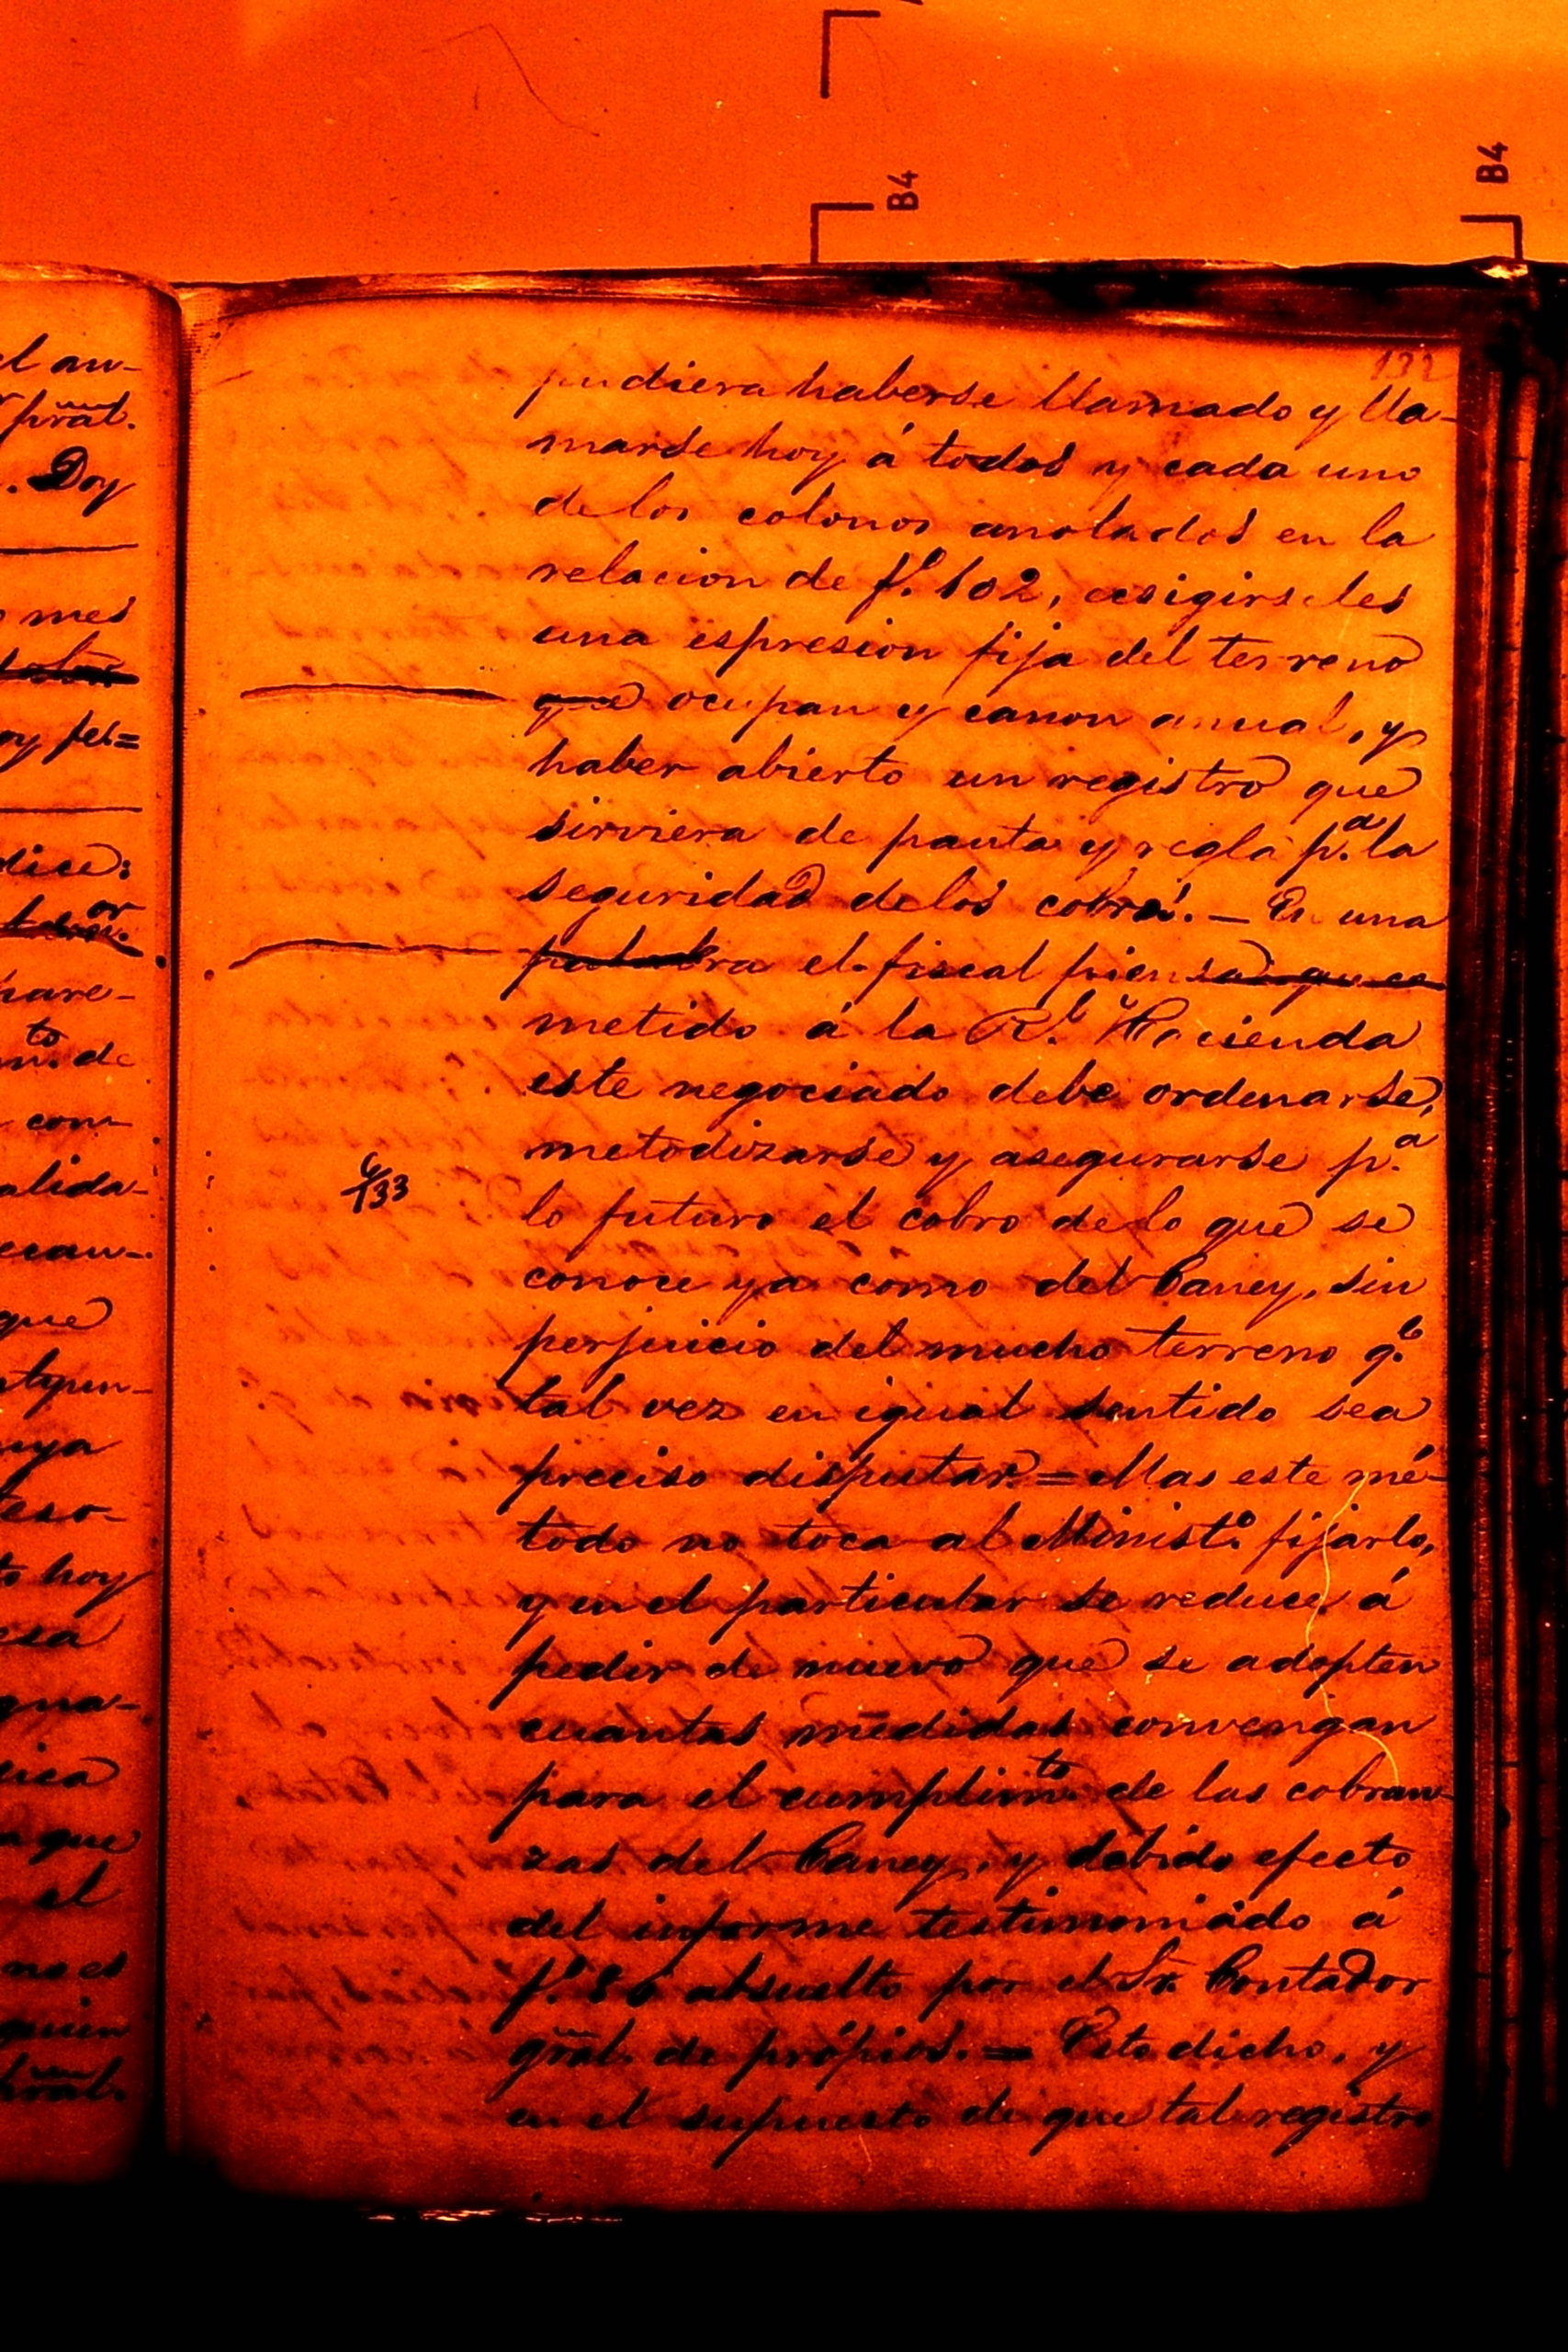 B4
B4
132
el au-
pr̃al.
. Doy
mes
oy fet=
dice:
or
pare-
to
de
con-
alida-
ecau-
que
nya
teso-
to hoy
esa
gna-
tica
a que
el
no es
quien
pr̃al.
pudiera haberse llamado y lla-
marse hoy á todos y cada uno
de los colonos anotados en la
relacion de f.º 102, ecsigirseles
una espresion fija del terreno
que ocupan y canon anual, y
haber abierto un registro que
sirviera de pauta y regla p.ª la
seguridad de los cobros. — En una
palabra el fiscal piensa que co
metido á la R.l Hacienda
este negociado debe ordenarse,
metodizarse y asegurarse p.ª
133
lo futuro el cobro de lo que se
conoce ya como del Caney, sin
perjuicio del mucho terreno q.e
tal vez en igual sentido sea
preciso disputar. = Mas este mé-
todo no toca al Minist.º fijarlo,
q en el particular se reduce á
pedir de nuevo que se adopten
cuantas medidas convengan
para el cumplim.to de las cobran-
zas del Caney, y debido efecto
del informe testimoniado á
f.º 86 absuelto por el Sr. Contador
gr̃al. de própios. = Esto dicho, y
en el supuesto de que tal registro